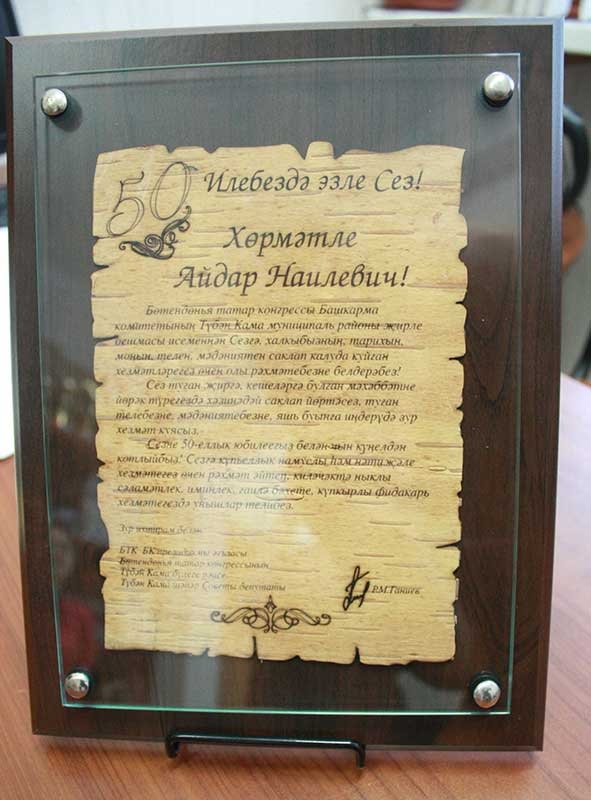 50
Илебездә эзле Сез!
Хөрмәтле
Айдар Наилевич!
Бөтендөнья татар конгрессы Башкарма
комитетының Түбән Кама муниципаль районы җирле
оешмасы исеменнән Сезгә, халкыбызның, тарихын,
моңын, телен, мәдәниятен саклап калуда куйган
хезмәтләрегез өчен олы рәхмәтебезне белдерәбез!
Сез туган җиргә, кешеләргә булган мәхәббәтне
йөрәк түрегездә хәзинәдәй саклап йөртәсез, туган
телебезне, мәдәниятебезне, яшь буынга иңдерүдә зур
хезмәт куясыз.
Сезне 50-еллык юбилеегыз белән чын күңелдән
котлыйбыз! Сезгә күпьеллык намуслы һәм нәтиҗәле
хезмәтегез өчен рәхмәт әйтеп, киләчәктә ныклы
сәламәтлек, иминлек, гаилә бәхете, күпкырлы фидакарь
хезмәтегездә уңышлар телибез.
Зур ихтирам белән
БТК БК президиумы әгъзасы
Бөтендөнья татар конгрессының
Түбән Кама бүлеге рәисе
Түбән Кама шәһәр Советы депутаты
Р.М.Ганиев